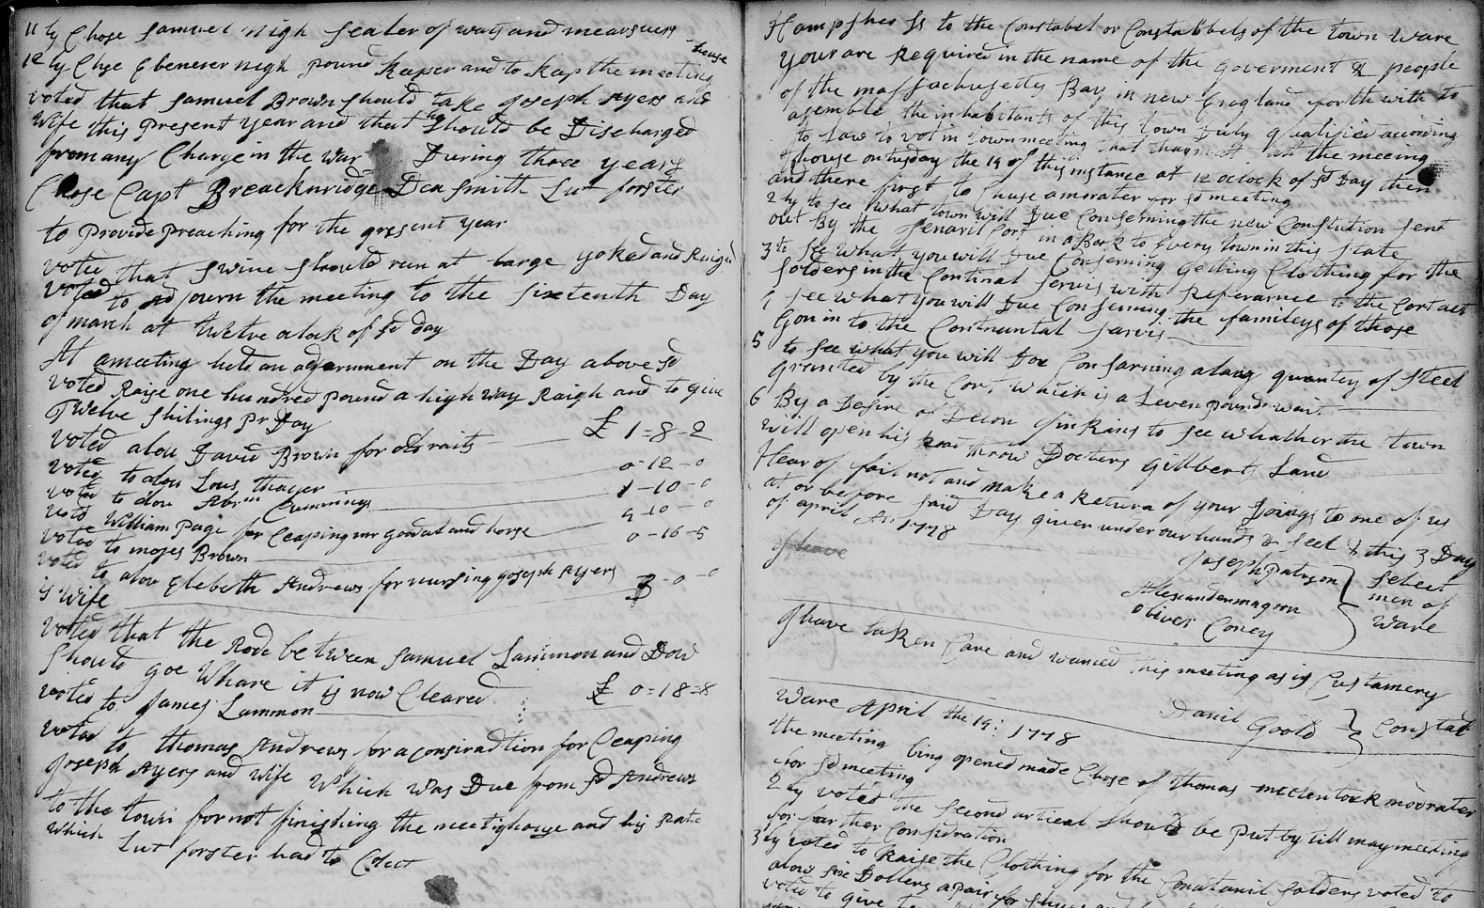 11 ly Chose Samuel nigh Sealer of wats and mearsuers
12 ly Chse Ebenezer nigh pound Kaper and to Kap the meeting house
voted that Samuel Brown Should take Joseph Ayers and
Wife this present year and that he Should be Discharged
from any Charge in the War During those years
Chose Capt Breacknridge Dea Smith Lut forster
to provide preaching for the present year
voted that Swine Should run at large yoked and Ringed
voted to adjourn the meeting to the Sixtenth Day
of march at twelve aloak of sd day
At ameeting held an adgernment on the Day above sd
voted Raise one hundred pound a high way Raigh and to give
Twelve Shilings pr Day
voted alou David Brown for old raits £ 1=8-2
voted to alou Lous thayer 0-12-0
voted to alou Abrm Cummings 1-10-0
voted William Page for Ceaping mr goodal and horse -10-0
voted to moses Brown 0-16-5
voted to alou Elebeth Andrews for nursing Joseph Ayers 3-0-0
is Wife
voted that the Rode between Samuel Lammon and Dow
Should goe Whare it is now Cleared
voted to James Lammon £ 0=18=8
voted to thomas Andrews for a consiradtion for Ceaping
Joseph Ayers and Wife Which Was Due from sd Andrews
to the town for not finishing the meetighouse and his rate
which Lut forster had to Colect
Hampsher Ss to the Constabel or Constabbels of the town Ware
your are Required in the name of the Goverment & people
of the massachusetts Bay in new Engeland forth with to
asemble the inhabitants of this town Duly qualified according
to Law to vot in town meeting that thay meet att the meeing
house on tusday the 14 of this instance at 12 oclock of sd Day then
and there first to Chuse amorater for sd meeting
2 ly to See what town will Due Conserning the new Constution Sent
out By the Genaril Cort in a Book to Every town in this State
3 to See What you will Due Conserning Getting Clothing for the
Solders in the Continal Servis with Referance to the Cort act
See What you will Due Conserning the familys of those
Gon in to the Continantal Sarvis
5 to See what you will Doe Consarning a larg quantey of Steel
Granted by the Cort Which is a Leven pounds wait
6 By a Desire of Decon Jinkins to See whather the town
will open his Road throw Docters Gillberts Land
Hear of fail not and make a Return of your Doings to one of us
at or before Said Day given under our hands & Seel this 3 Day
of april An 1778
Joseph Patrson
Alexander magoon
Oliver Coney
Select men of Ware
I have
I have taKen Care and warned this meeting as is Custamery
Danil Goold Constab
Ware April the 14: 1778
the meeting bing opened made Chose of thomas mcclentock moorater
for sd meeting
2 ly voted the Second artical Should be put by till may meeting
for farther Considration
3 ly voted to Raise the Clothing for the Conatanil Solders voted to
alow Six Dollers a pair for Shues
voted to give